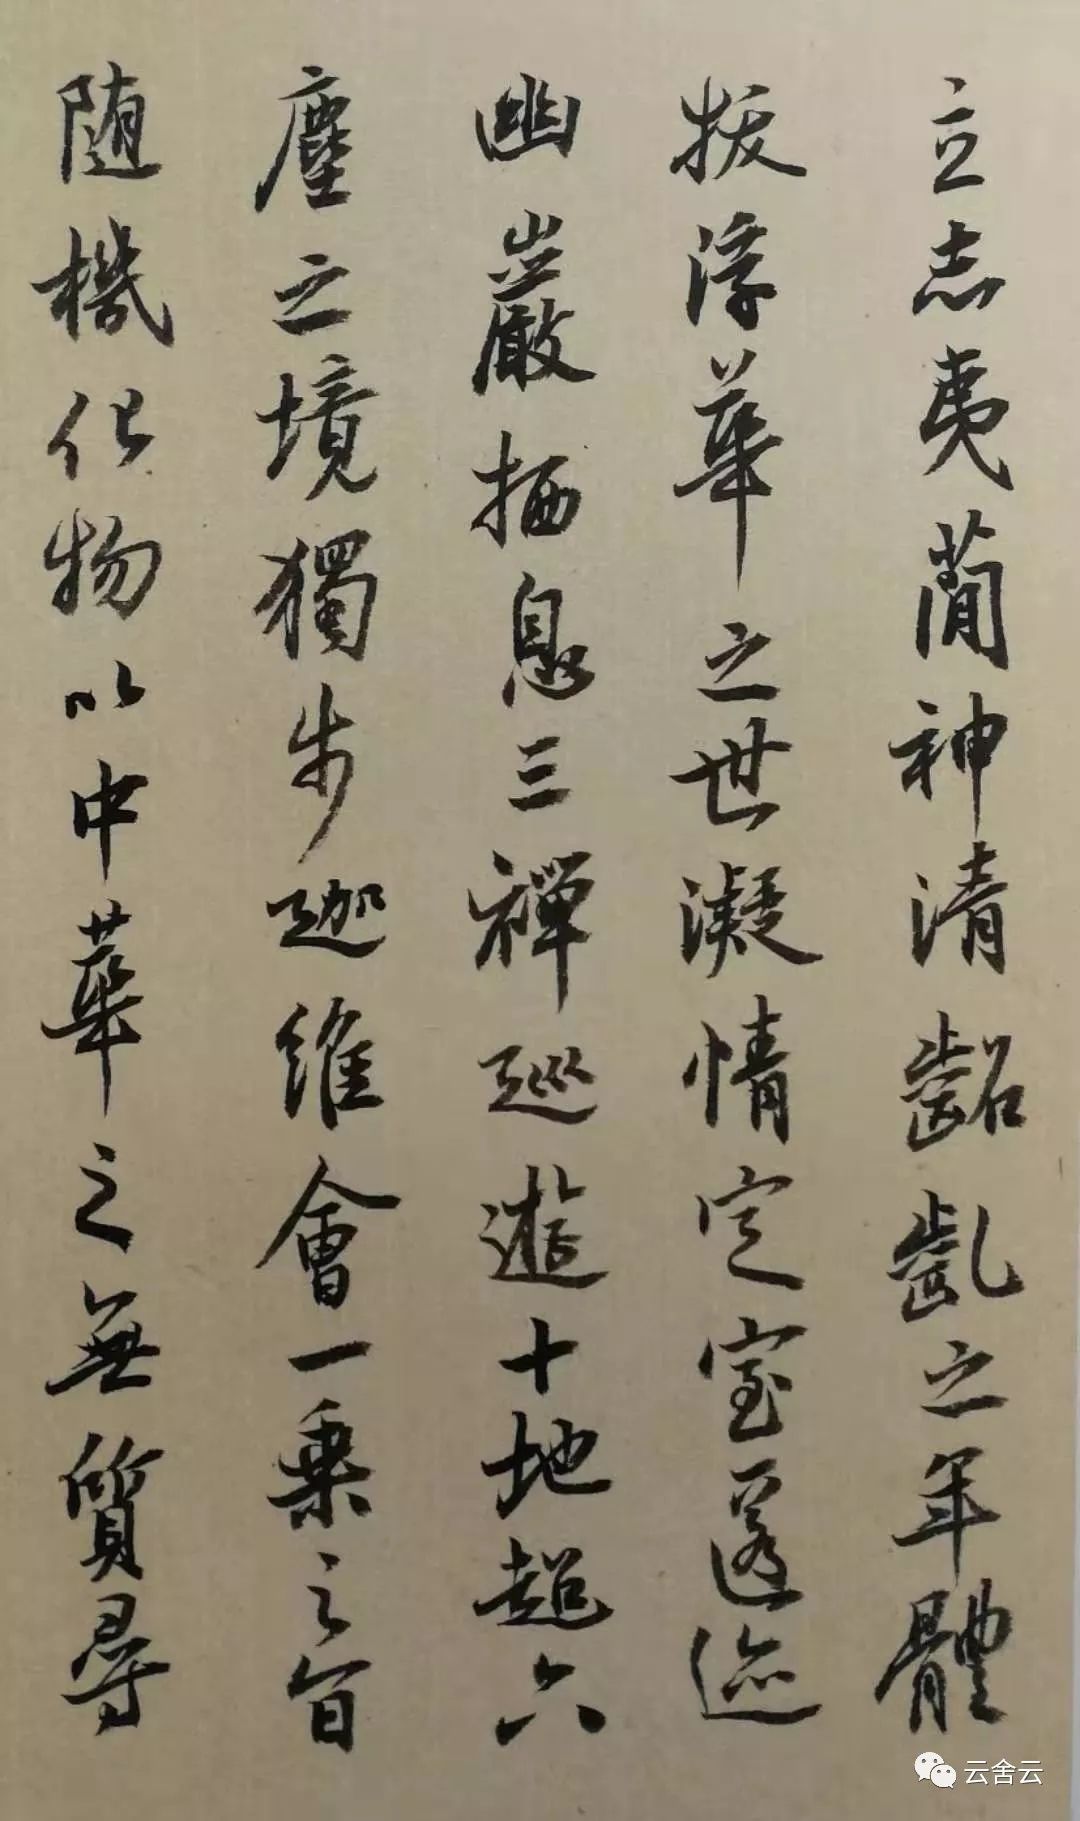 立志夷蕳神清齠齓之年體
拔浮華之世凝情定室匿迹
幽巖栖息三禪巡遊十地超六
塵之境獨步迦維會一乗之旨
随機化物以中華之無質尋
云舍云